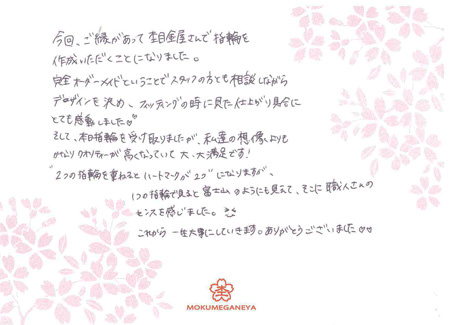 今回、ご縁があって杢目金屋さんで指輪を
作成いただくことになりました。
完全オーダーメイドということでスタッフの方とも相談しながら
デザインを決め、フィッティングの時に見た仕上がり具合に
とても感動しました♡
そして、本日指輪を受け取りましたが、私達の想像よりも
かなりクオリティーが高くなっていて大、大満足です!
"2つの指輪を重ねるとハートマークが1つ"になりますが、
1つの指輪で見ると富士山のようにも見えて、そこに職人さんの
センスを感じました。
これから一生大事にしていきます。ありがとうございました♡♡
MOKUMEGANEYA